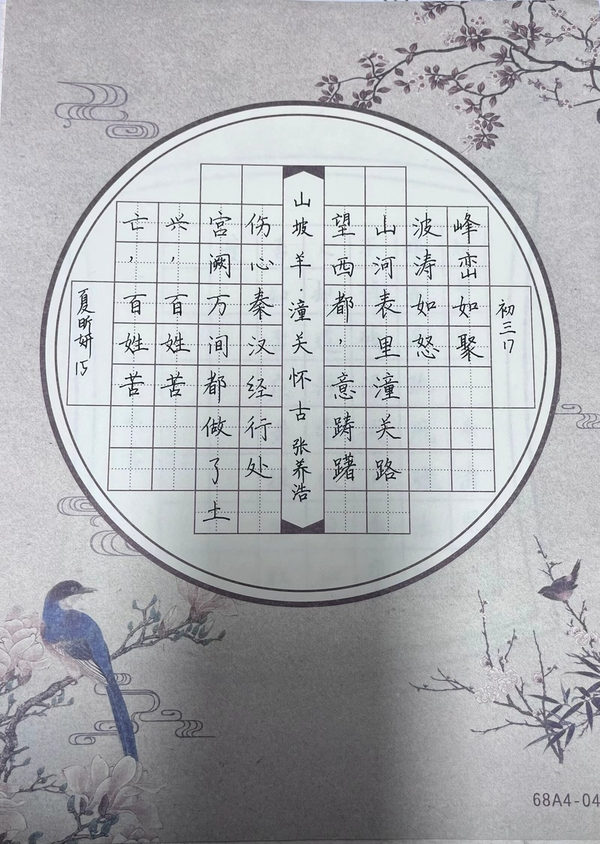 初三17
峰峦如聚
波涛如怒
山河表里潼关路
望西都，意踌躇
山坡羊·潼关怀古 张养浩
伤心秦汉经行处
宫阙万间都做了土
兴，百姓苦
亡，百姓苦
夏昕妍15
68A4-04